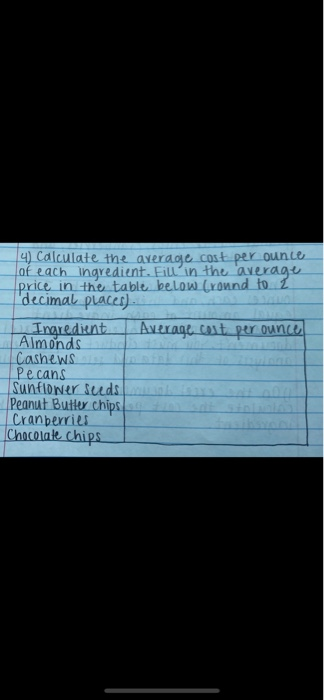 4) Calculate the average cost per ounce
of each ingredient. Fill in the average
price in the table below (round to 2
decimal places).
Ingredient Average cost per ounce
Almonds
Cashews
Pecans
Sunflower Seeds
Peanut Butter chips
Cranberries
Chocolate chips